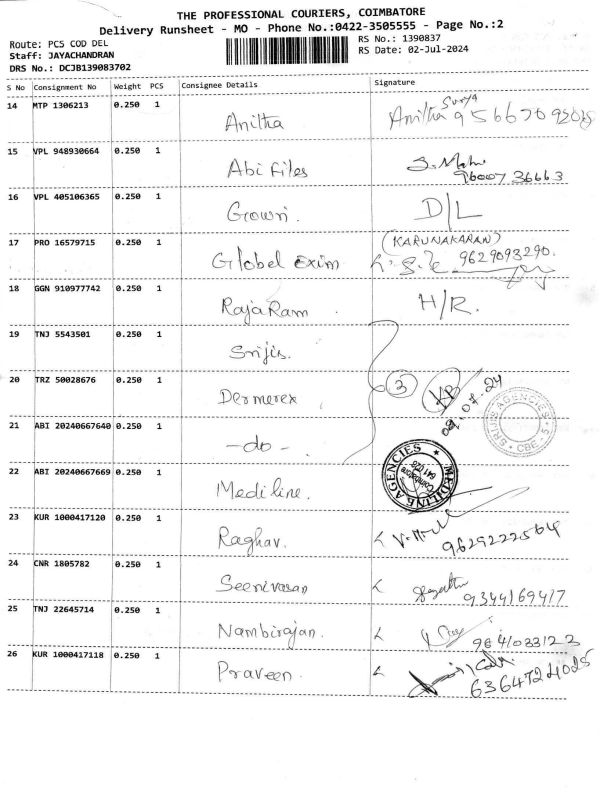 THE PROFESSIONAL COURIERS, COIMBATORE
Delivery Runsheet - MO - Phone No.:0422-3505555 - Page No.:2
Route: PCS COD DEL
Staff: JAYACHANDRAN
DRS No.: DCJB139083702
RS No.: 1390837
RS Date: 02-Jul-2024
S No Consignment No Weight PCS Consignee Details Signature
14 MTP 1306213 0.250 1 Anitha Anitha Surya
15 VPL 948930664 0.250 1 Abi Files 9600736663
16 VPL 405106365 0.250 1 Gowri. D/L
17 PRO 16579715 0.250 1 Globel Exim (KARUNAKARAN) 9629093290.
18 GGN 910977742 0.250 1 RajaRam H/R.
19 TNJ 5543501 0.250 1 Srijis.
20 TRZ 50028676 0.250 1 Dermerex 3 02.07.24
SRIJIS AGENCIES CBE-5
21 ABI 20240667640 0.250 1 -do-
22 ABI 20240667669 0.250 1 Mediline.
MEDILINE AGENCIES Coimbatore 641 028
23 KUR 1000417120 0.250 1 Raghav. 9629222564
24 CNR 1805782 0.250 1 Seenivasan 9344169417
25 TNJ 22645714 0.250 1 Nambirajan. 9841033123
26 KUR 1000417118 0.250 1 Praveen. 6364724025